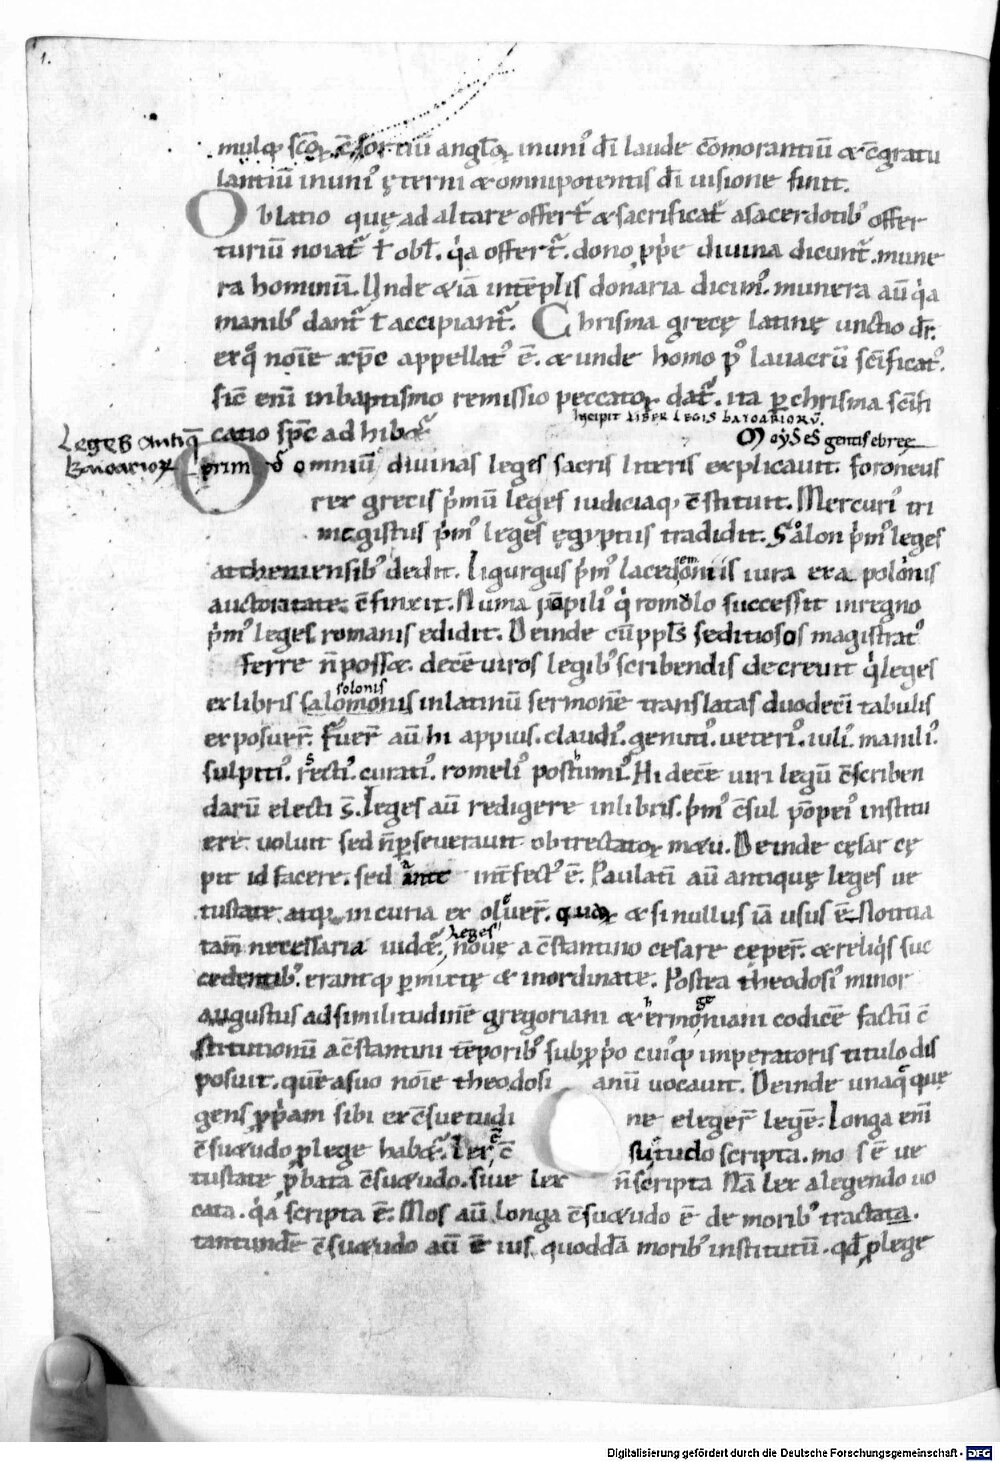 1.
mulq; sc̄oꝝ c̄sortiū angl̄oꝝ inuni᷒ dī laude c̄omorantiū & c̄gratu
lantiū inuni᷒ ęterni & omnipotentis dī uisione finit.
Oblatio quę ad altare offert᷑ & sacrificat᷑ a sacerdotib᷒ offer
turiū noiat᷑ ł obl̄. q̇a offert᷑. dono pp̄e diuina dicunt᷑. mune
ra hominū. Unde &iā intēplis donaria dicim᷒. munera aū q̇a
manib᷒ dant᷑ ł accipiant᷑. Chrisma grecę latinę unctio dr̄.
ex q̊ noīe xp̄c appellat᷒ ē. & unde homo p᷒ lauacrū sc̄ificat᷒.
sic̄ enī in baptismo remissio peccatoꝝ dat᷑. ita ꝑ chrisma sc̄ifi
catio sp̄c adhib&᷑
Incipit LIBER LEGIS BAIOARIORV̄.
Leges Antiq̄
Baioarioꝝ
Moyses gentis ebreę
prim᷒ omniū diuinas leges sacris litteris explicauit. foroneus
rex grecis p̓mū leges iudiciaq; c̄stituit. Mercuri᷒ tri
megistus p̓m᷒ leges ęgyptiis tradidit. Salon p̓m᷒ leges
atheniensib᷒ dedit. Ligurgus p̓m᷒ lacedomiis iura ex apolinis
auctoritate c̄finxit. Numa pōpili᷒ q̇ romolo successit in regno
p̓m᷒ leges romanis edidit. Deinde cū ppl̄s seditiosos magistrat᷒
ferre n̄ poss&. decē uiros legib᷒ scribendis decreuit q̇ leges
solonis
ex libris salomonis in latinū sermonē translatas duodecī tabulis
exposuer̄. Fuer̄ aū hi appius. claudi᷒. genuti᷒. ueteri᷒. iuli᷒. manili᷒.
sulpiti᷒. sexti᷒. curati᷒. romeli᷒ posthumi᷒. Hi decē uiri legū c̄scriben
darū electi s̄. Leges aū redigere in libris. p̓m᷒ c̄sul pōpei᷒ institu
ere uoluit sed n̄ ꝑseuerauit obtrectatoꝝ m&u. Deinde cęsar cę
pit id facere. sed ante int̄fect᷒ ē. Paulatī aū antiquę leges ue
tustate atq; incuria exoluer̄. quaꝝ & si nullus iā usus ē. Notitia
leges
tam̄ necessaria uid&᷑. nouę a c̄stantino cesare cęper̄. & reliq̇s suc
cedentib᷒. erantq; ꝑmixtę & inordinate. Postea theodosi᷒ minor
augustus ad similitudinē gregoriani & hermogeniani codicē factū c̄
stitutionū a c̄stantini tēporib᷒ sub ꝓp̓o cui᷒q; imperatoris titulo dis
posuit. quē a suo noīe theodosi anū uocauit. Deinde unaq̊quę
gens ꝓp̓am sibi ex c̄su&udi ne eleger̄ legē. Longa enī
c̄su&udo ꝓ lege hab&᷑. Lex ē c̄ stitutio scripta. mos ē ue
tustate ꝓbata c̄su&udo. siue lex n̄ scripta Nā lex a legendo uo
cata. q̇a scripta ē. Mos aū longa c̄su&udo ē de morib᷒ tractata.
tantundē c̄su&udo aū ē ius quoddā morib᷒ institutū. qd̄ ꝓ lege
Digitalisierung gefördert durch die Deutsche Forschungsgemeinschaft - DFG